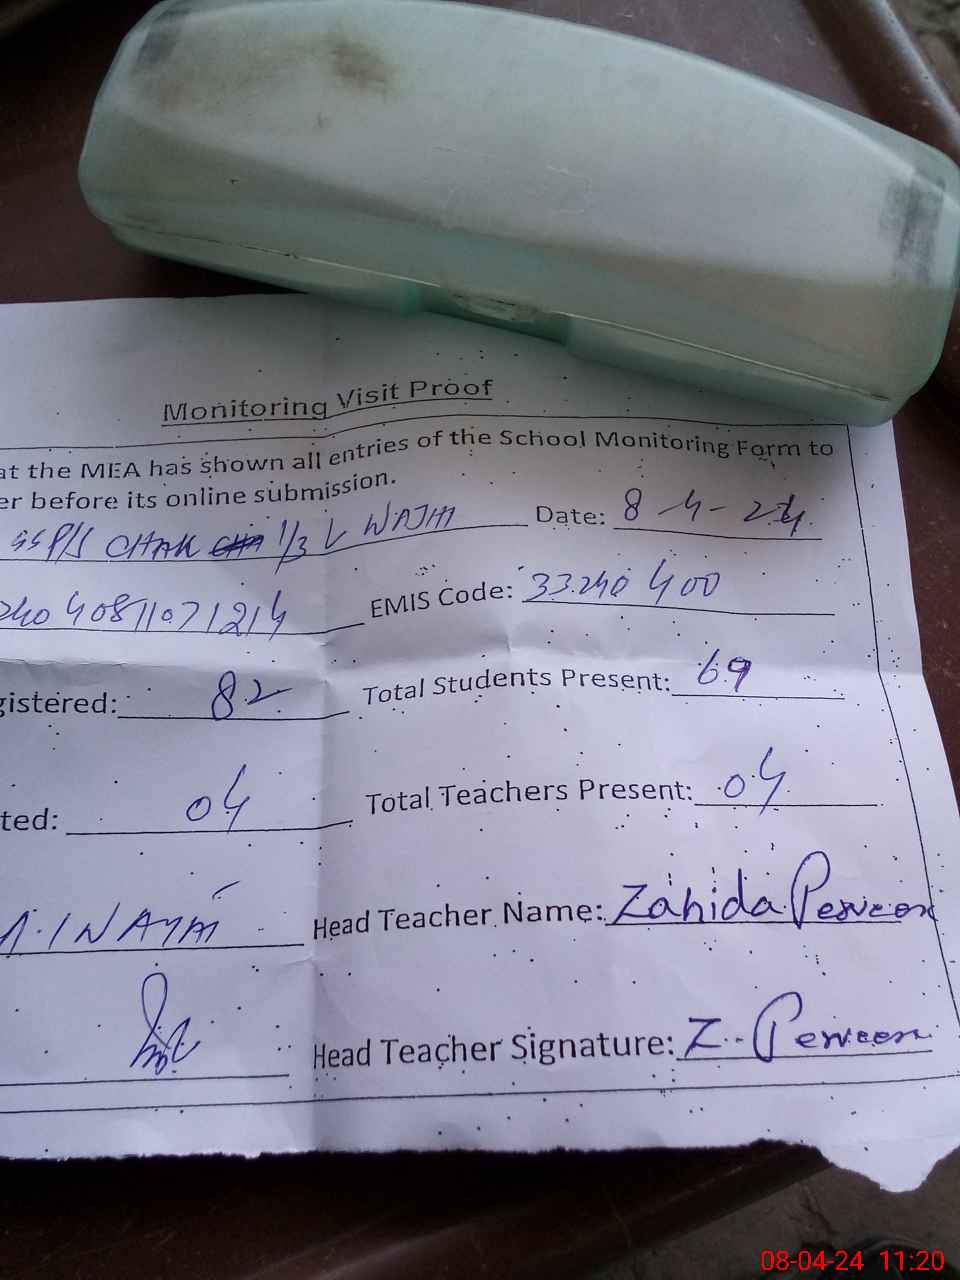 Monitoring Visit Proof
at the MEA has shown all entries of the School Monitoring Form to
er before its online submission.
CHAK 1/3 L Date: 8-4-24
40811071214 EMIS Code: 33240400
gistered: 82 Total Students Present: 69
ted: 04 Total Teachers Present: 04
INAYAT Head Teacher Name: Zahida Perveen
Head Teacher Signature: Z. Perveen
08-04-24 11:20